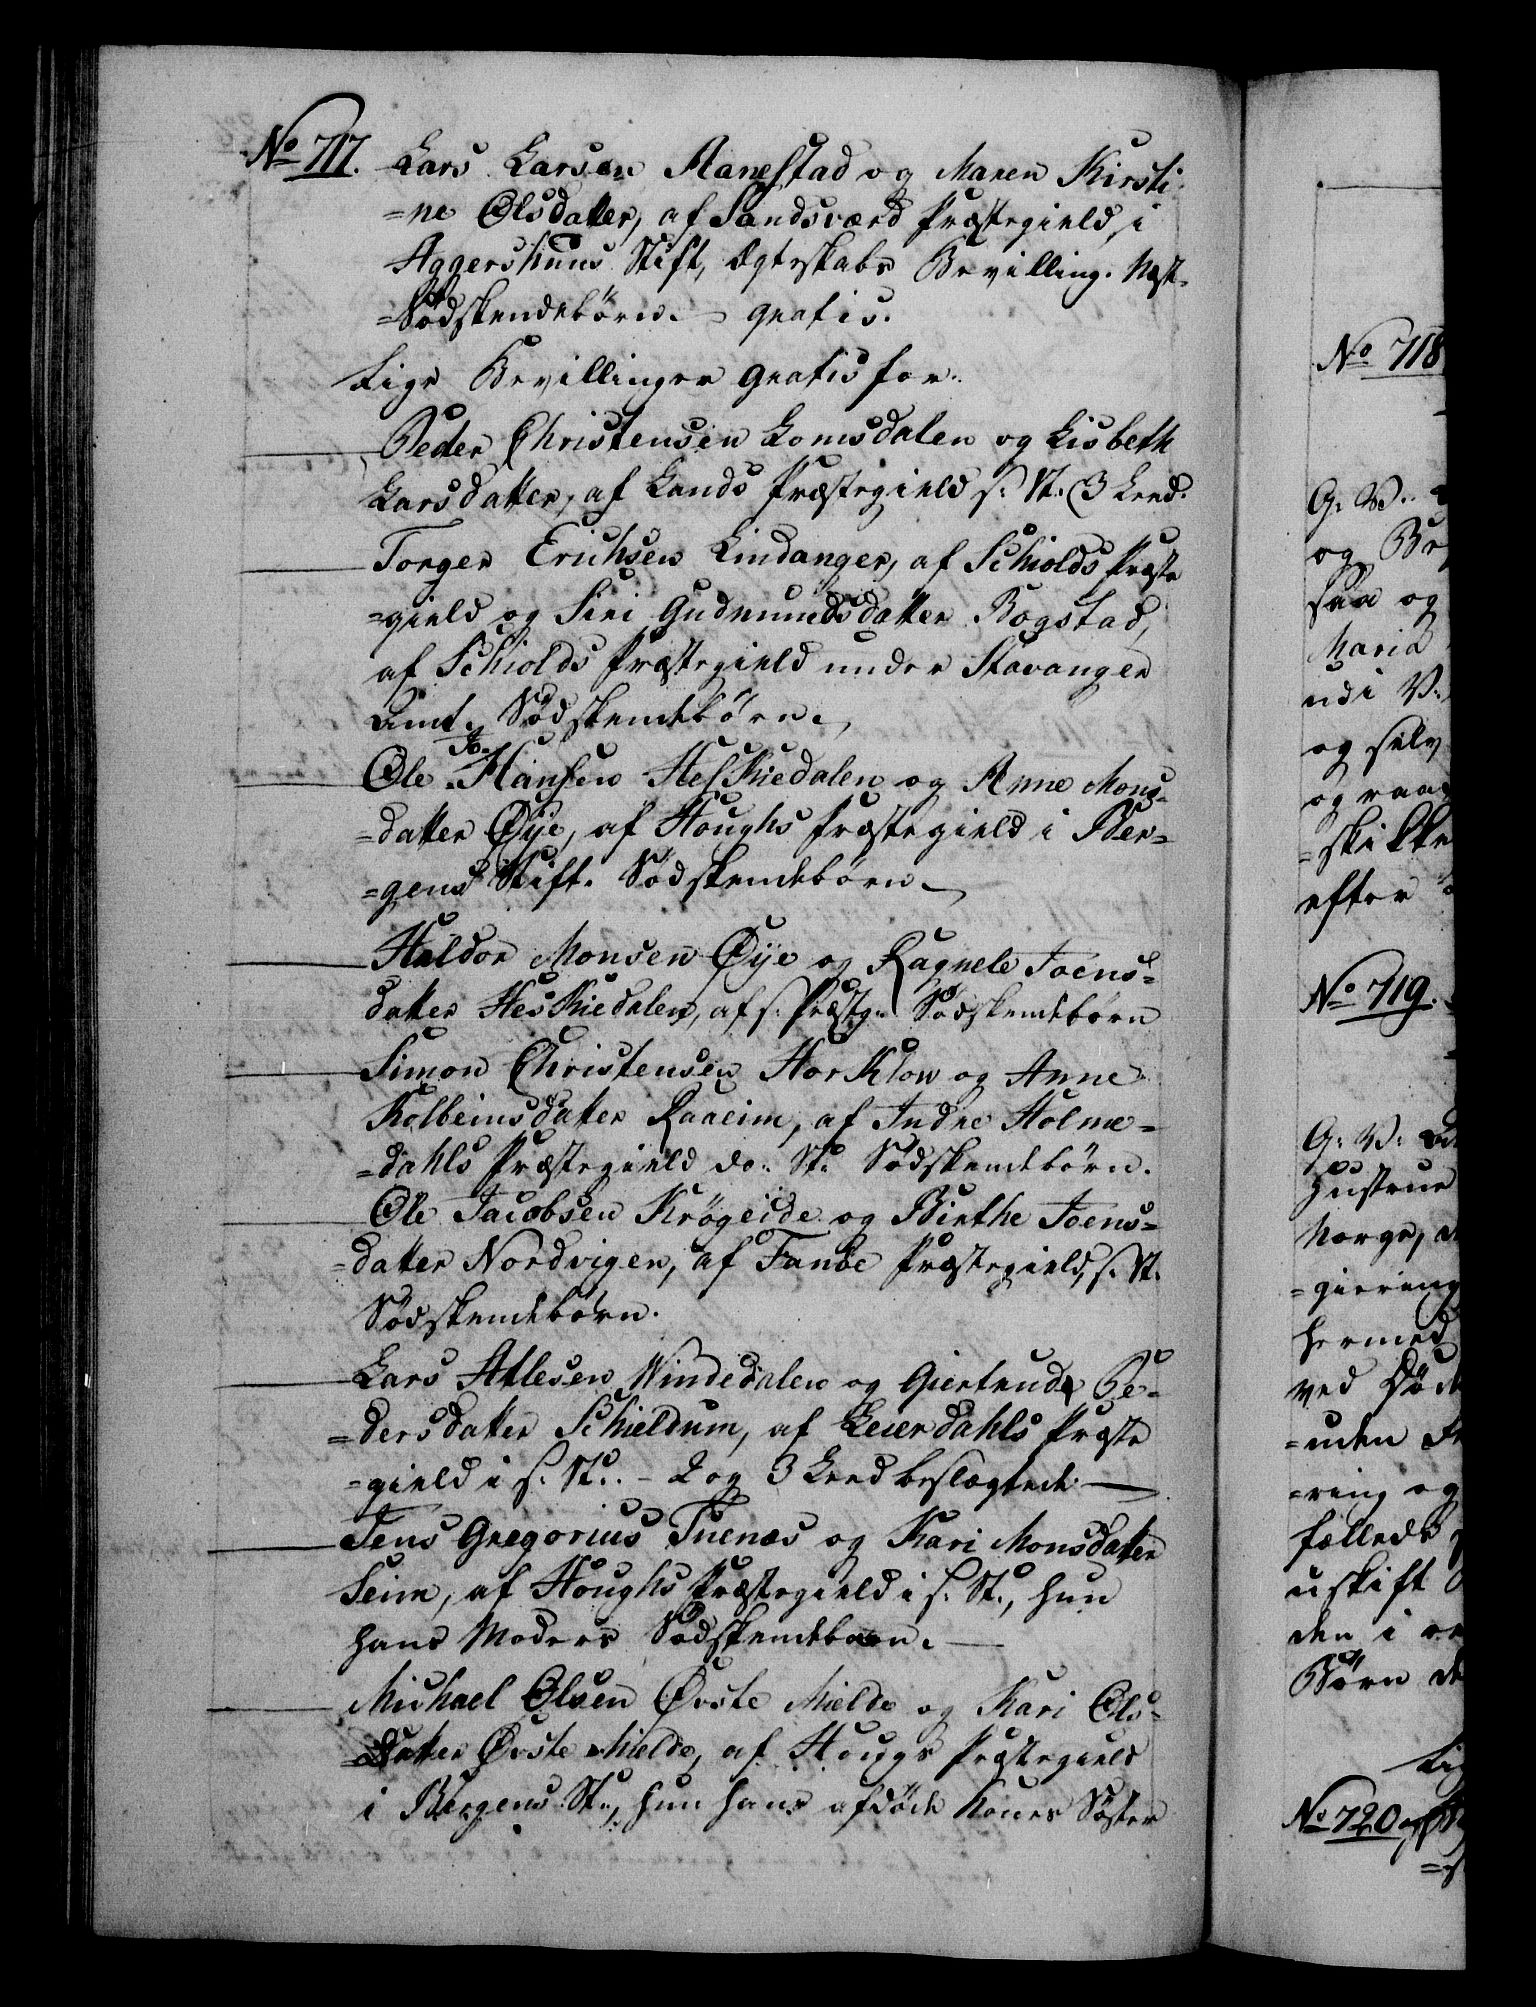 No 717. Lars Larsen Aanestad og Maren Kirsti-
=ne Olsdatter, af Sandsværd Præstegield, i
Aggershuus Stift, Ægteskabs Bevilling. Næst-
=Södskendebörn. gratis.
Lige Bevillinger gratis for.
Peder Christensen Lomsdalen og Lisbeth
Larsdatter, af Lands Præstegield s. St. 3 Leed.
Torger Erichsen Lindanger, af Schiolds Præste
=gield og Siri Gudmundsdatter Bogstad,
af Schiolds Præstegield under Stavanger
Amt. Södskendebörn.
Ole Jo. Hansen Heskiedalen og Anne Mons-
=datter Øÿe, af Houghs Præstegield i Ber=
=gens Stift. Södskendebörn.
Haldor Monsen Øÿe og Ragnele Joens=
datter Heskiedalen, af s. Præstg. Södskendebörn
Simon Christensen Horklow og Anne
Kolbeinsdatter Raaeim, af Indre Holme=
=dahls Præstegield do. St. Södskendebörn.
Ole Jacobsen Krögeide og Birthe Joens=
=datter Nordvigen, af Fanöe Præstegield, s. St.
Södskendebörn.
Lars Atlesen Windedalen og Giertrude Pe-
=dersdatter Schieldum, af Leierdahls Præste
=gield i s. St. - 2 og 3 Leed beslægtede
Jens Gregorius Tuenæs og Kari Monsdatter
Seim, af Houghs Præstegield i s. St., hun
hans Moders Södskendebarn.
Michael Olsen Øvste Mielde og Kari Ols-
=datter Øvste Mielde, af Hougs Præstegield
i Bergens St., hun hans afdöde Kones Söster
No 718
G. V.
og
saa og
Maria
udi V.
og selv
og raa
=skikke
efter
No 719.
G. V.
Hustrue
Norge,
=giering
hermed
ved Död
=uden
=ring og
fælleds
uskift
den i
Börn
Lig
No 720